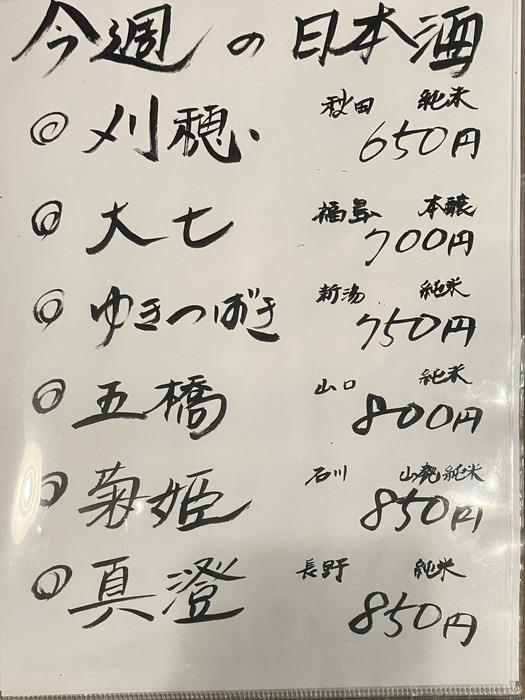 今週の日本酒
◎ 刈穂 秋田 純米
650円
◎ 大七 福島 本醸
700円
◎ ゆきつばき 新潟 純米
750円
◎ 五橋 山口 純米
800円
◎ 菊姫 石川 山廃純米
850円
◎ 真澄 長野 純米
850円